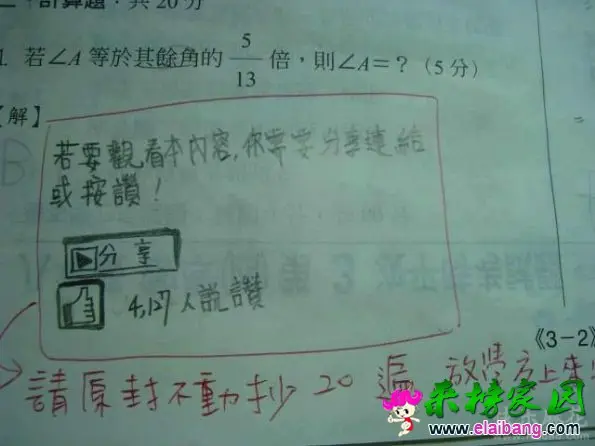 二、計算題：共20分
1. 若∠A等於其餘角的 5/13 倍，則∠A=？（5分）
【解】
若要觀看本內容，你需要分享連結
或按讚！
分享
4,127人說讚
《3-2》
請原封不動抄20遍 放學
来榜家园
www.elaibang.com